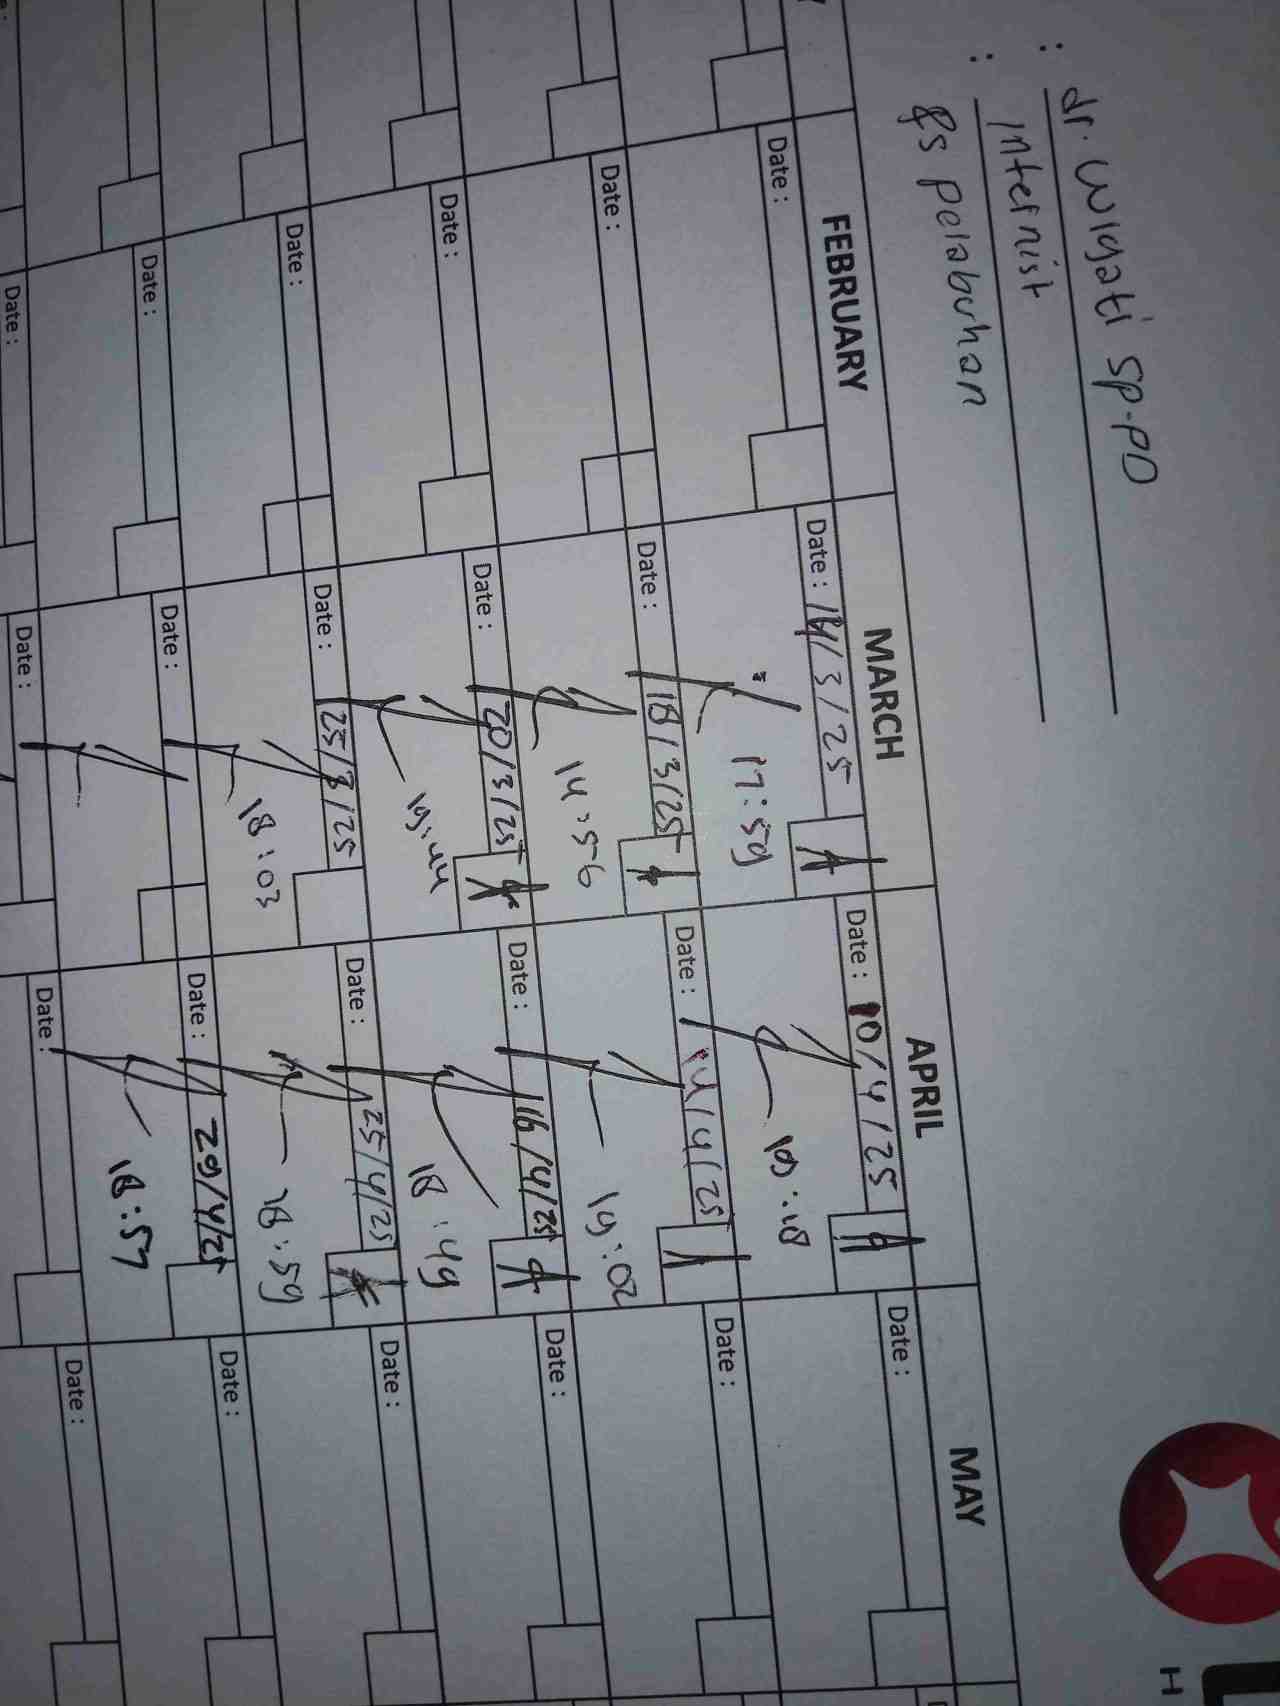 : dr. Wigati Sp-PD
: Internist
: RS Pelabuhan
FEBRUARY MARCH APRIL MAY
Date : Date : 14/3/25 Date : 10/4/25 Date :
17:59 19:18
Date : Date : 18/3/25 Date : 14/4/25 Date :
14:56 19:02
Date : Date : 20/3/25 Date : 16/4/25 Date :
19:44 18:49
Date : Date : 25/3/25 Date : 25/4/25 Date :
18:03 18:59
Date : Date : Date : 29/4/25 Date :
18:57
Date : Date : Date : Date :
H